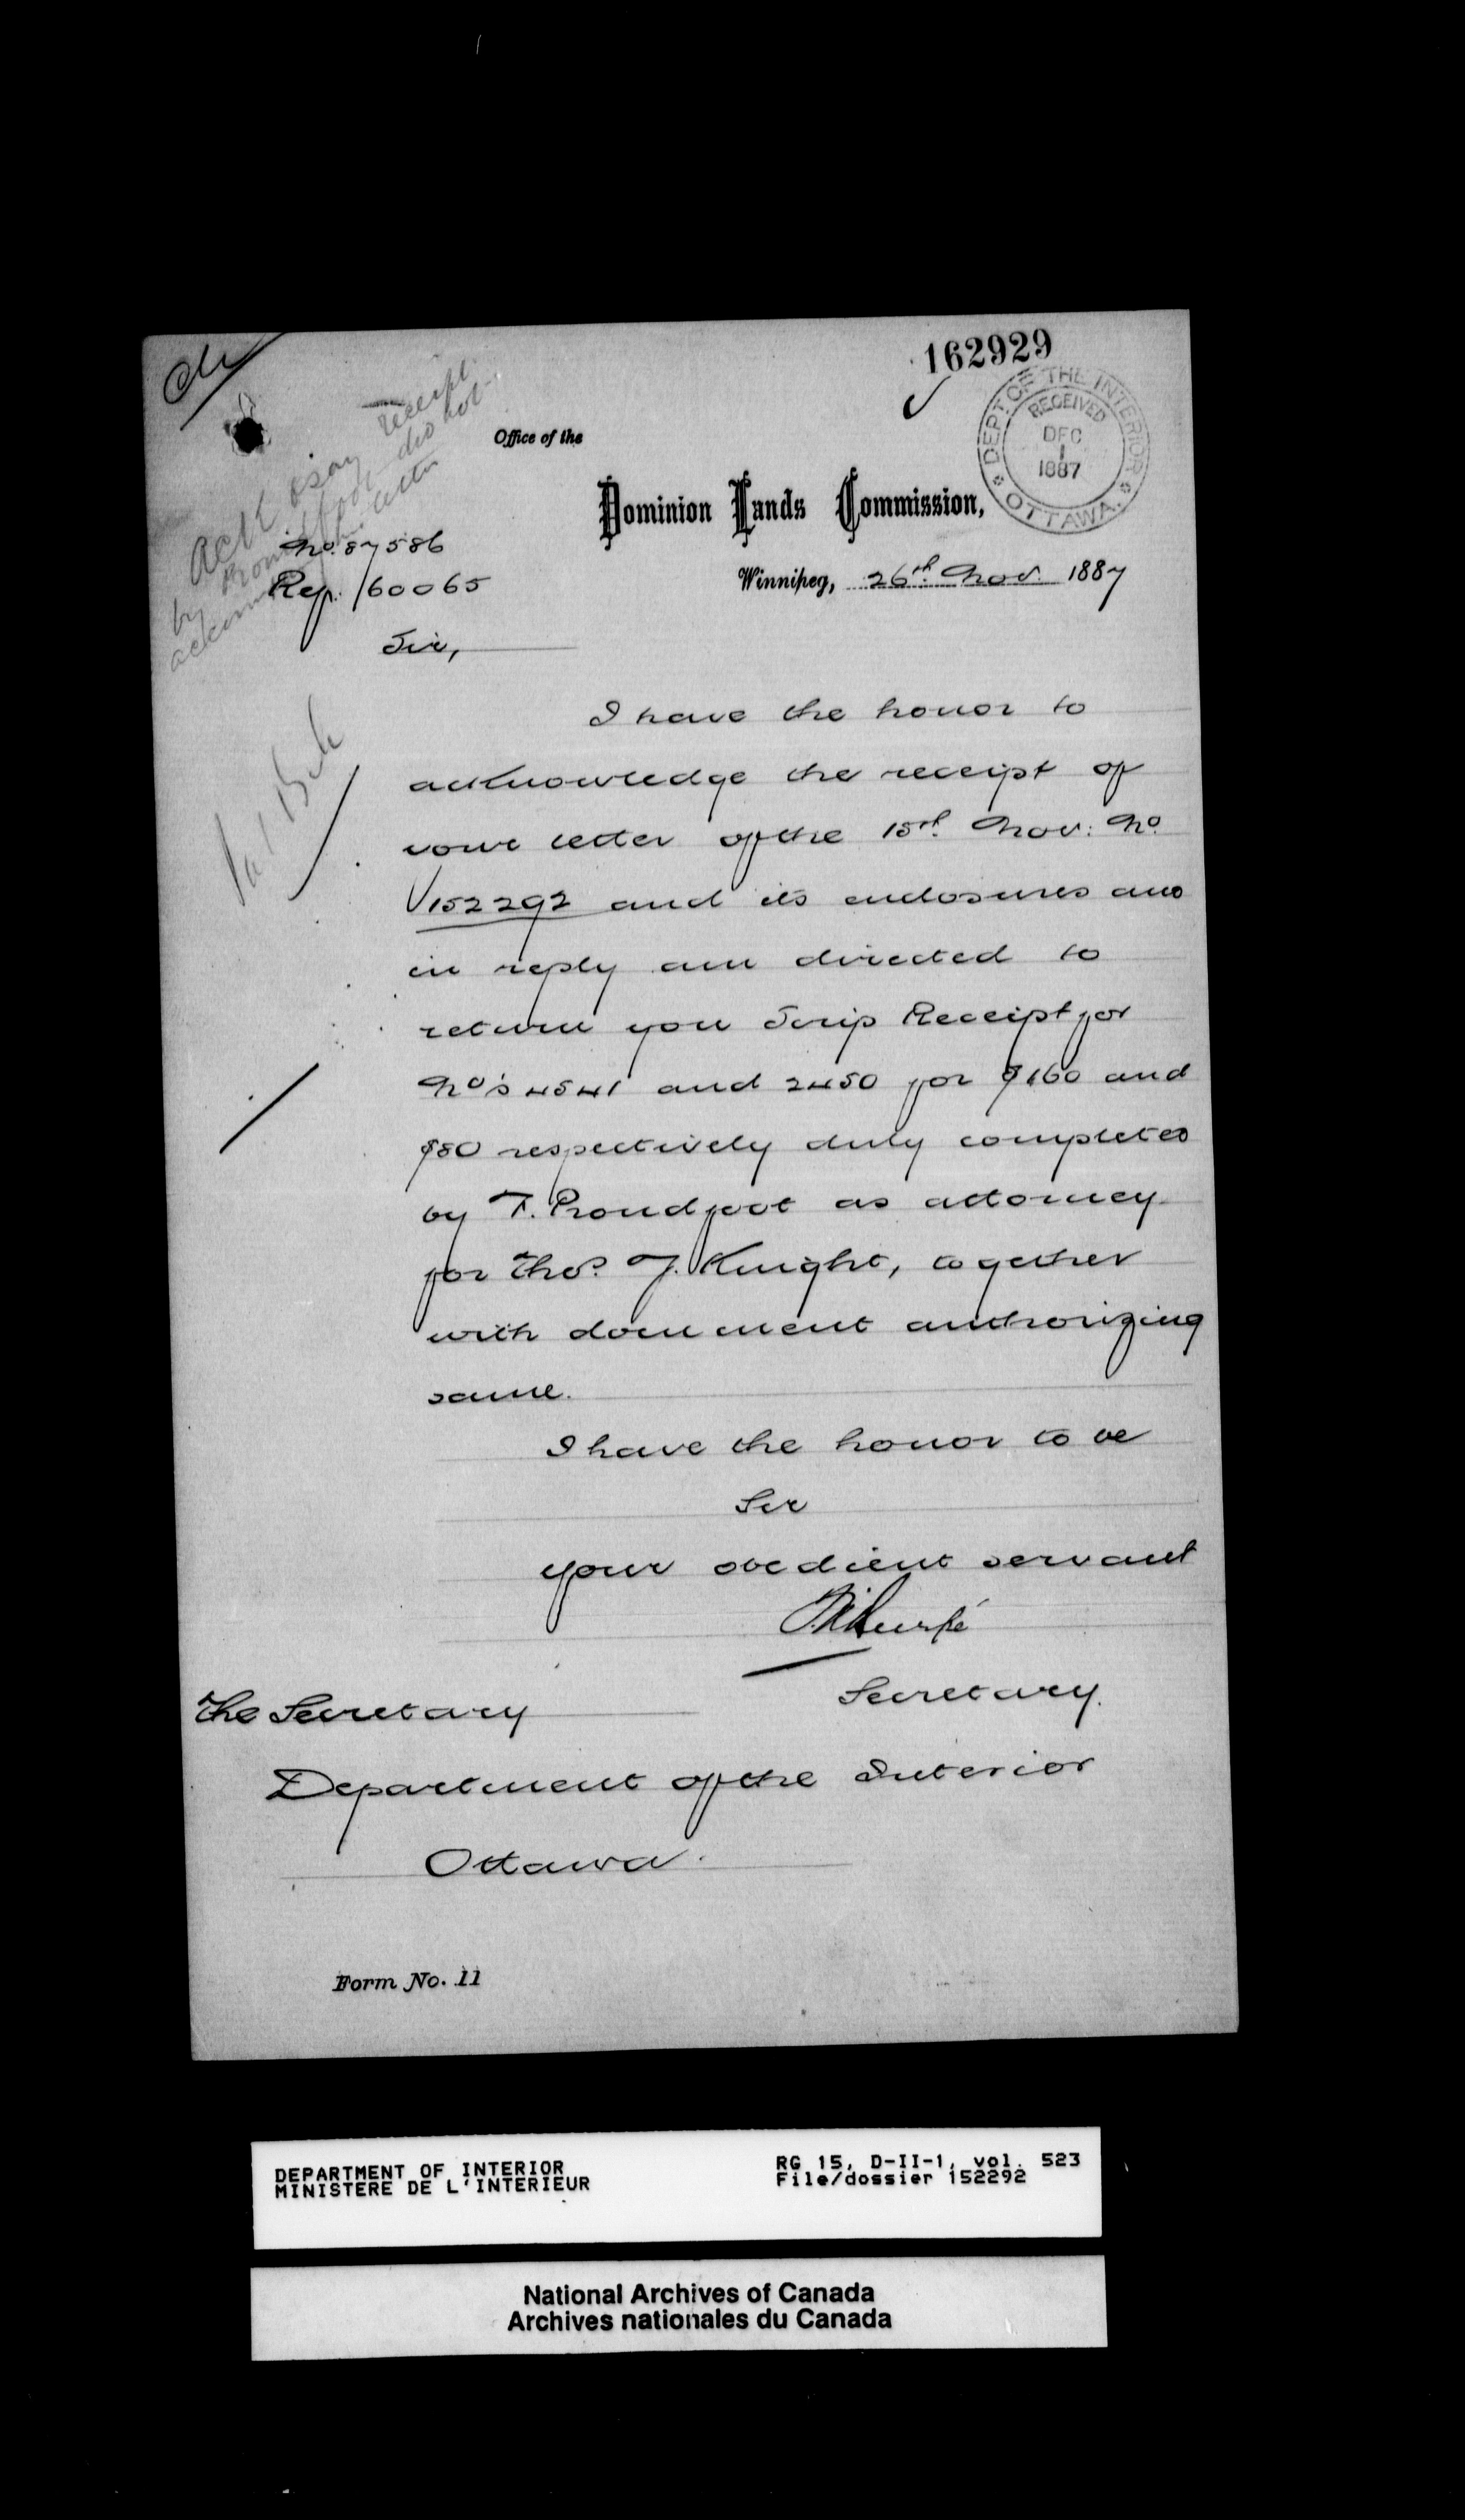 162929
DEPT. OF THE INTERIOR
RECEIVED
DEC
1
1887
OTTAWA.
Ack
receipt
do not
Office of the
Dominion Lands Commission,
No. 87586
Winnipeg, 26th Nov. 1887
Ref. 160065
Sir,
I have the honor to
acknowledge the receipt of
your letter of the 15th Nov: No
152292 and its enclosures and
in reply am directed to
return you Scrip Receipt for
No's 4541 and 2450 for $160 and
$80 respectively duly completed
by T. Proudfoot as attorney
for Thos. J. Knight, together
with document authorizing
same.
I have the honor to be
Sir
your obedient servant
Secretary.
The Secretary
Department of the Interior
Ottawa.
Form No. 11
DEPARTMENT OF INTERIOR
MINISTERE DE L'INTERIEUR
RG 15, D-II-1, vol. 523
File/dossier 152292
National Archives of Canada
Archives nationales du Canada